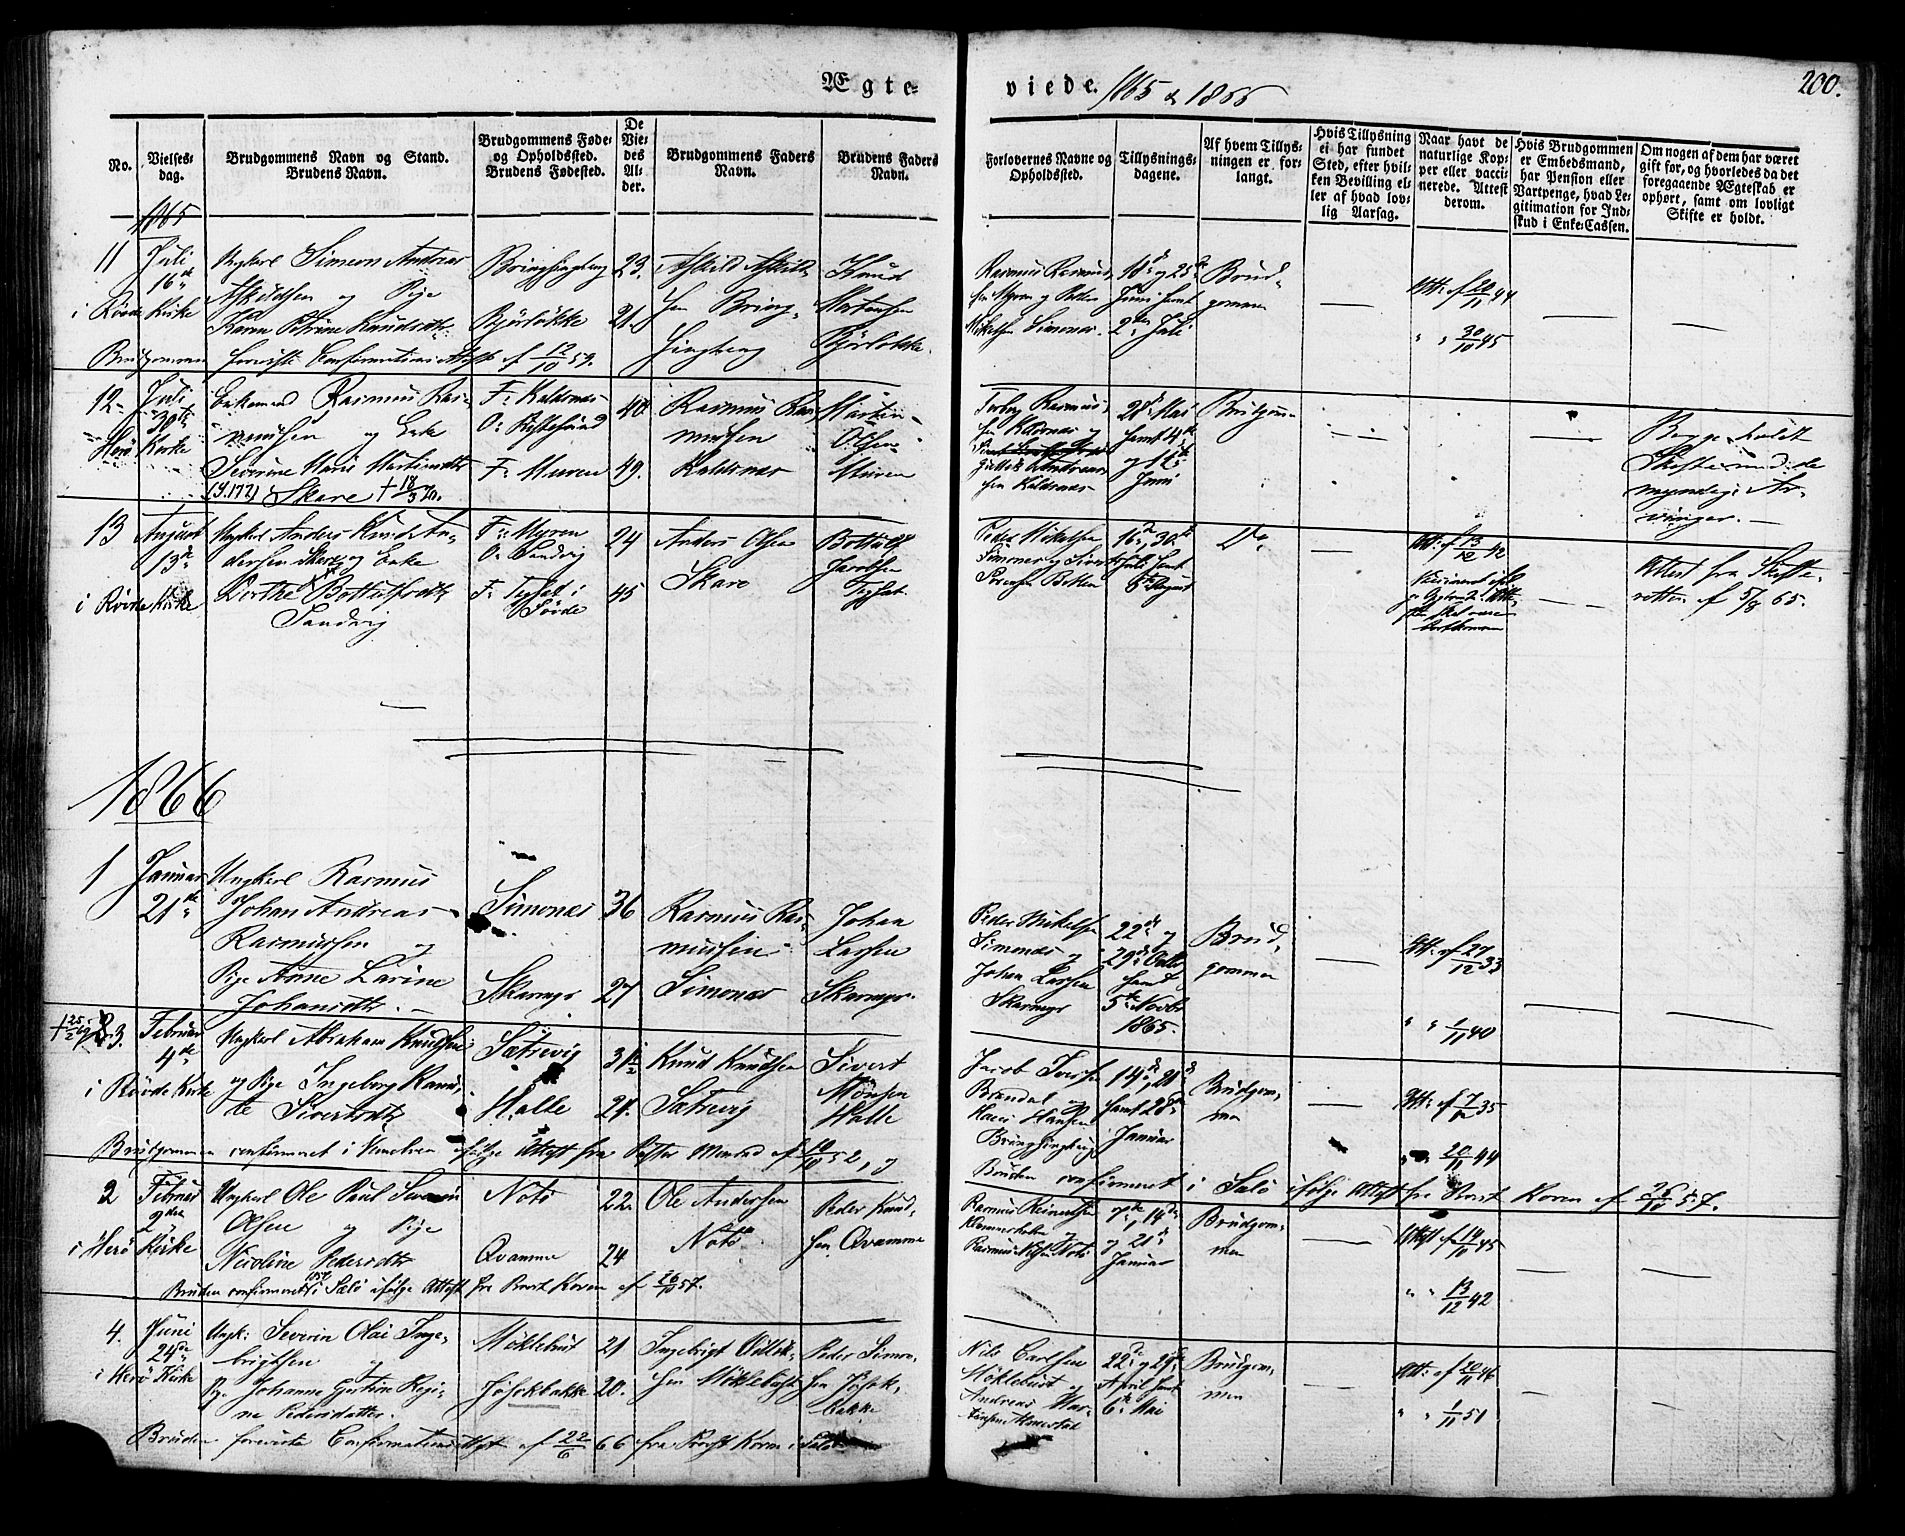 Ægte-
viede. 1865 & 1866
200.
No.
Vielses-
dag.
Brudgommens Navn og Stand.
Brudens Navn.
Brudgommens Føde-
og Opholdssted.
Brudens Fødested.
De
Vie-
des
Al-
der.
Brudgommens Faders
Navn.
Brudens Faders
Navn.
Forlovernes Navne og
Opholdssted.
Tillysnings-
dagene.
Af hvem Tillys-
ningen er for-
langt.
Hvis Tillysning
ei har fundet
Sted, efter hvil-
ken Bevilling el-
ler af hvad lov-
lig Aarsag.
Naar havt de
naturlige Kop-
per eller vacci-
nerede. Attest
derom.
Hvis Brudgommen
er Embedsmand,
har Pension eller
Vartpenge, hvad Le-
gitimation for Ind-
skud i Enke-Cassen.
Om nogen af dem har været
gift før, og hvorledes da det
foregaaende Ægteskab er
ophørt, samt om lovligt
Skifte er holdt.
1865
11
Juli
16de
i Røvde Kirke
Ungkarl Simeon Andreas
Askildsen og Pige
Karen Petrine Knudsdtr
Bringsingberg
Bjørløkke
23.
21.
Askild Askild-
sen Bring-
singberg
Knud
Martinsen
Bjørløkke.
Rasmus Rasmus-
sen Myren og Peder
Mikelsen Simones.
18de og 25de
Juni samt
2den Juli
Brud-
gommen
Att: af 20/11 44
" " 30/10 45
Brudgommen foreviste Confirmations Attest af 12/10 59.
12
Juli
30te
Herö Kirke
Enkemand Rasmus Ras-
mussen og Enke
Severine Marie Martinsdtr
Skare † 18/3 70.
F: Kaldsnes
O: Røttesund
F: Muren
40
49.
Rasmus Ras-
mussen
Kaldsnes
Martin
Olsen
Muren
Rasmus-
sen Kaldsnes og
Andreas-
sen Kaldsnes
28de Mai
samt 4de
og 11te
Juni
Brudgom-
Begge holdt
Skifte med de
myndige Ar-
vinger.
13
August
13de
i Røvde Kirke
Ungkarl Anders Knud An-
dersen Skare og Enke
Dorthe Bottolfsdtr
Sandvig
F: Myren
O: Sandvig
F: Tegset i
Søvde
24
45
Anders Olsen
Skare
Bottolf
Jacobsen
Tegset.
Peder Mikelsen
Simones og Sivert
Petersen Botten
16de, 30te
Juli samt
6te August
Do
Att: af 13/12 42
Attest fra Skifte-
retten af 5/8 65.
1866
1
Januar
21de
Ungkarl Rasmus
Johan Andreas
Rasmussen og
Pige Anne Larine
Johansdtr.
Simones
Skarmyr
36
27
Rasmus Ras-
mussen
Simones
Johan
Larsen
Skarmyr.
Peder Mikelsen
Simones og
Johan Larsen
Skarmyr
22de og
29de Octbr
samt
5te Novbr
1865.
Brud-
gommen
Att: af 27/12 33
" " 1/11 40
3.
Februar
4de
i Røvde Kirke
Ungkarl Abraham Knudsen
og Pige Ingeborg Kanu-
te Sivertsdtr
Sætrevig
Halle
31½
21.
Knud Knudsen
Sætrevig
Sivert
Mønsen
Halle
Jacob Iversen
Brandal og
Hans Hansen
Bringsingberg
14de, 21de
samt 28de
Januar
Brudgom-
men
Att: af 7/11 35
" 20/11 44
Brudgommen confirmeret i Vanelven ifølge Attest fra Pastor af 10/10 52, og
Bruden confirmeret i Sulö ifølge Attest fra Provst Koren af 26/10 57.
2
Februar
2den
i Herö Kirke
Ungkarl Ole Paul Severin
Olsen og Pige
Nicoline Pedersdtr
Notö
Qvamme
22
24
Ole Andersen
Notö
Peder Knud-
sen Qvamme
Rasmus Reinertsen
og
Rasmus Nilsen Notö
7de, 14de
og 21de
Januar
Brudgom-
men
Attest af 14/11 45
" " 13/12 42
Bruden confirmeret i Sulö ifølge Attest fra Provst Koren af 26/10 57.
4.
Juni
24de
i Herö Kirke
Ungk: Severin Olai Inge-
brigtsen og
Pige Johanne Gurine Regi-
ne Pedersdatter.
Möklebust
Jösokbakke
21
20.
Ingebrigt
sen Möklebust
Peder Simon-
sen Jösok-
bakke
Nils Carlsen
Möklebust og
Andreas Mar-
tinsen
22de og 29de
April samt
6te Mai
Brudgom-
men
Att: af 20/11 46
" " 1/11 51
Bruden foreviste Confirmations Attest af 22/6 66 fra Provst Koren i Sulö